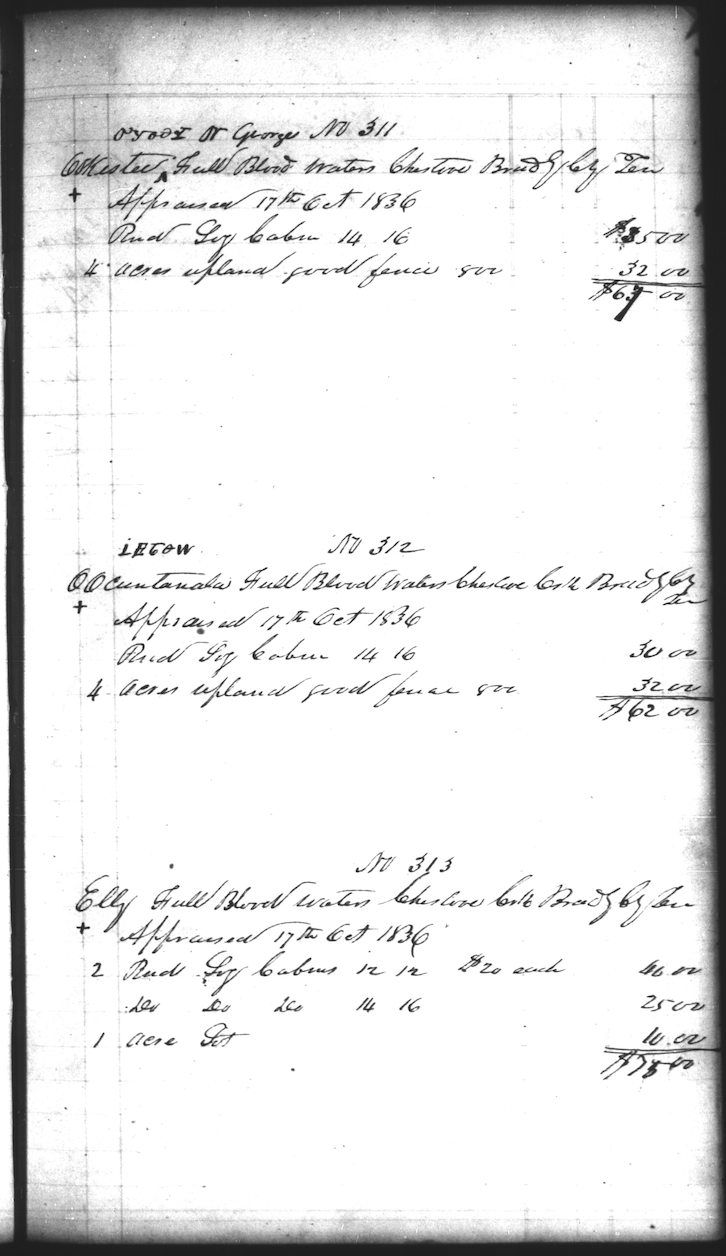 or George No 311
Full Blood Waters Chestove Bradly Cty Ten
+ Appraised 17th Oct 1836
Rnd Log Cabin 14 16 $3500
4 acres upland good fence 800 32 00
$67 00
No 312
Full Blood Waters Chestove Crk Bradly Cty
Ten
+ Appraised 17th Oct 1836
Rnd Log Cabin 14 16 30 00
4 acres upland good fence 800 32 00
$62 00
No 313
Elly Full Blood Waters Chestove Crk Bradly Cty Ten
+ Appraised 17th Oct 1836
2 Rnd Log Cabins 12 12 $20 each 40.00
Do Do Do 14 16 2500
1 acre Lot 10.00
$75 00